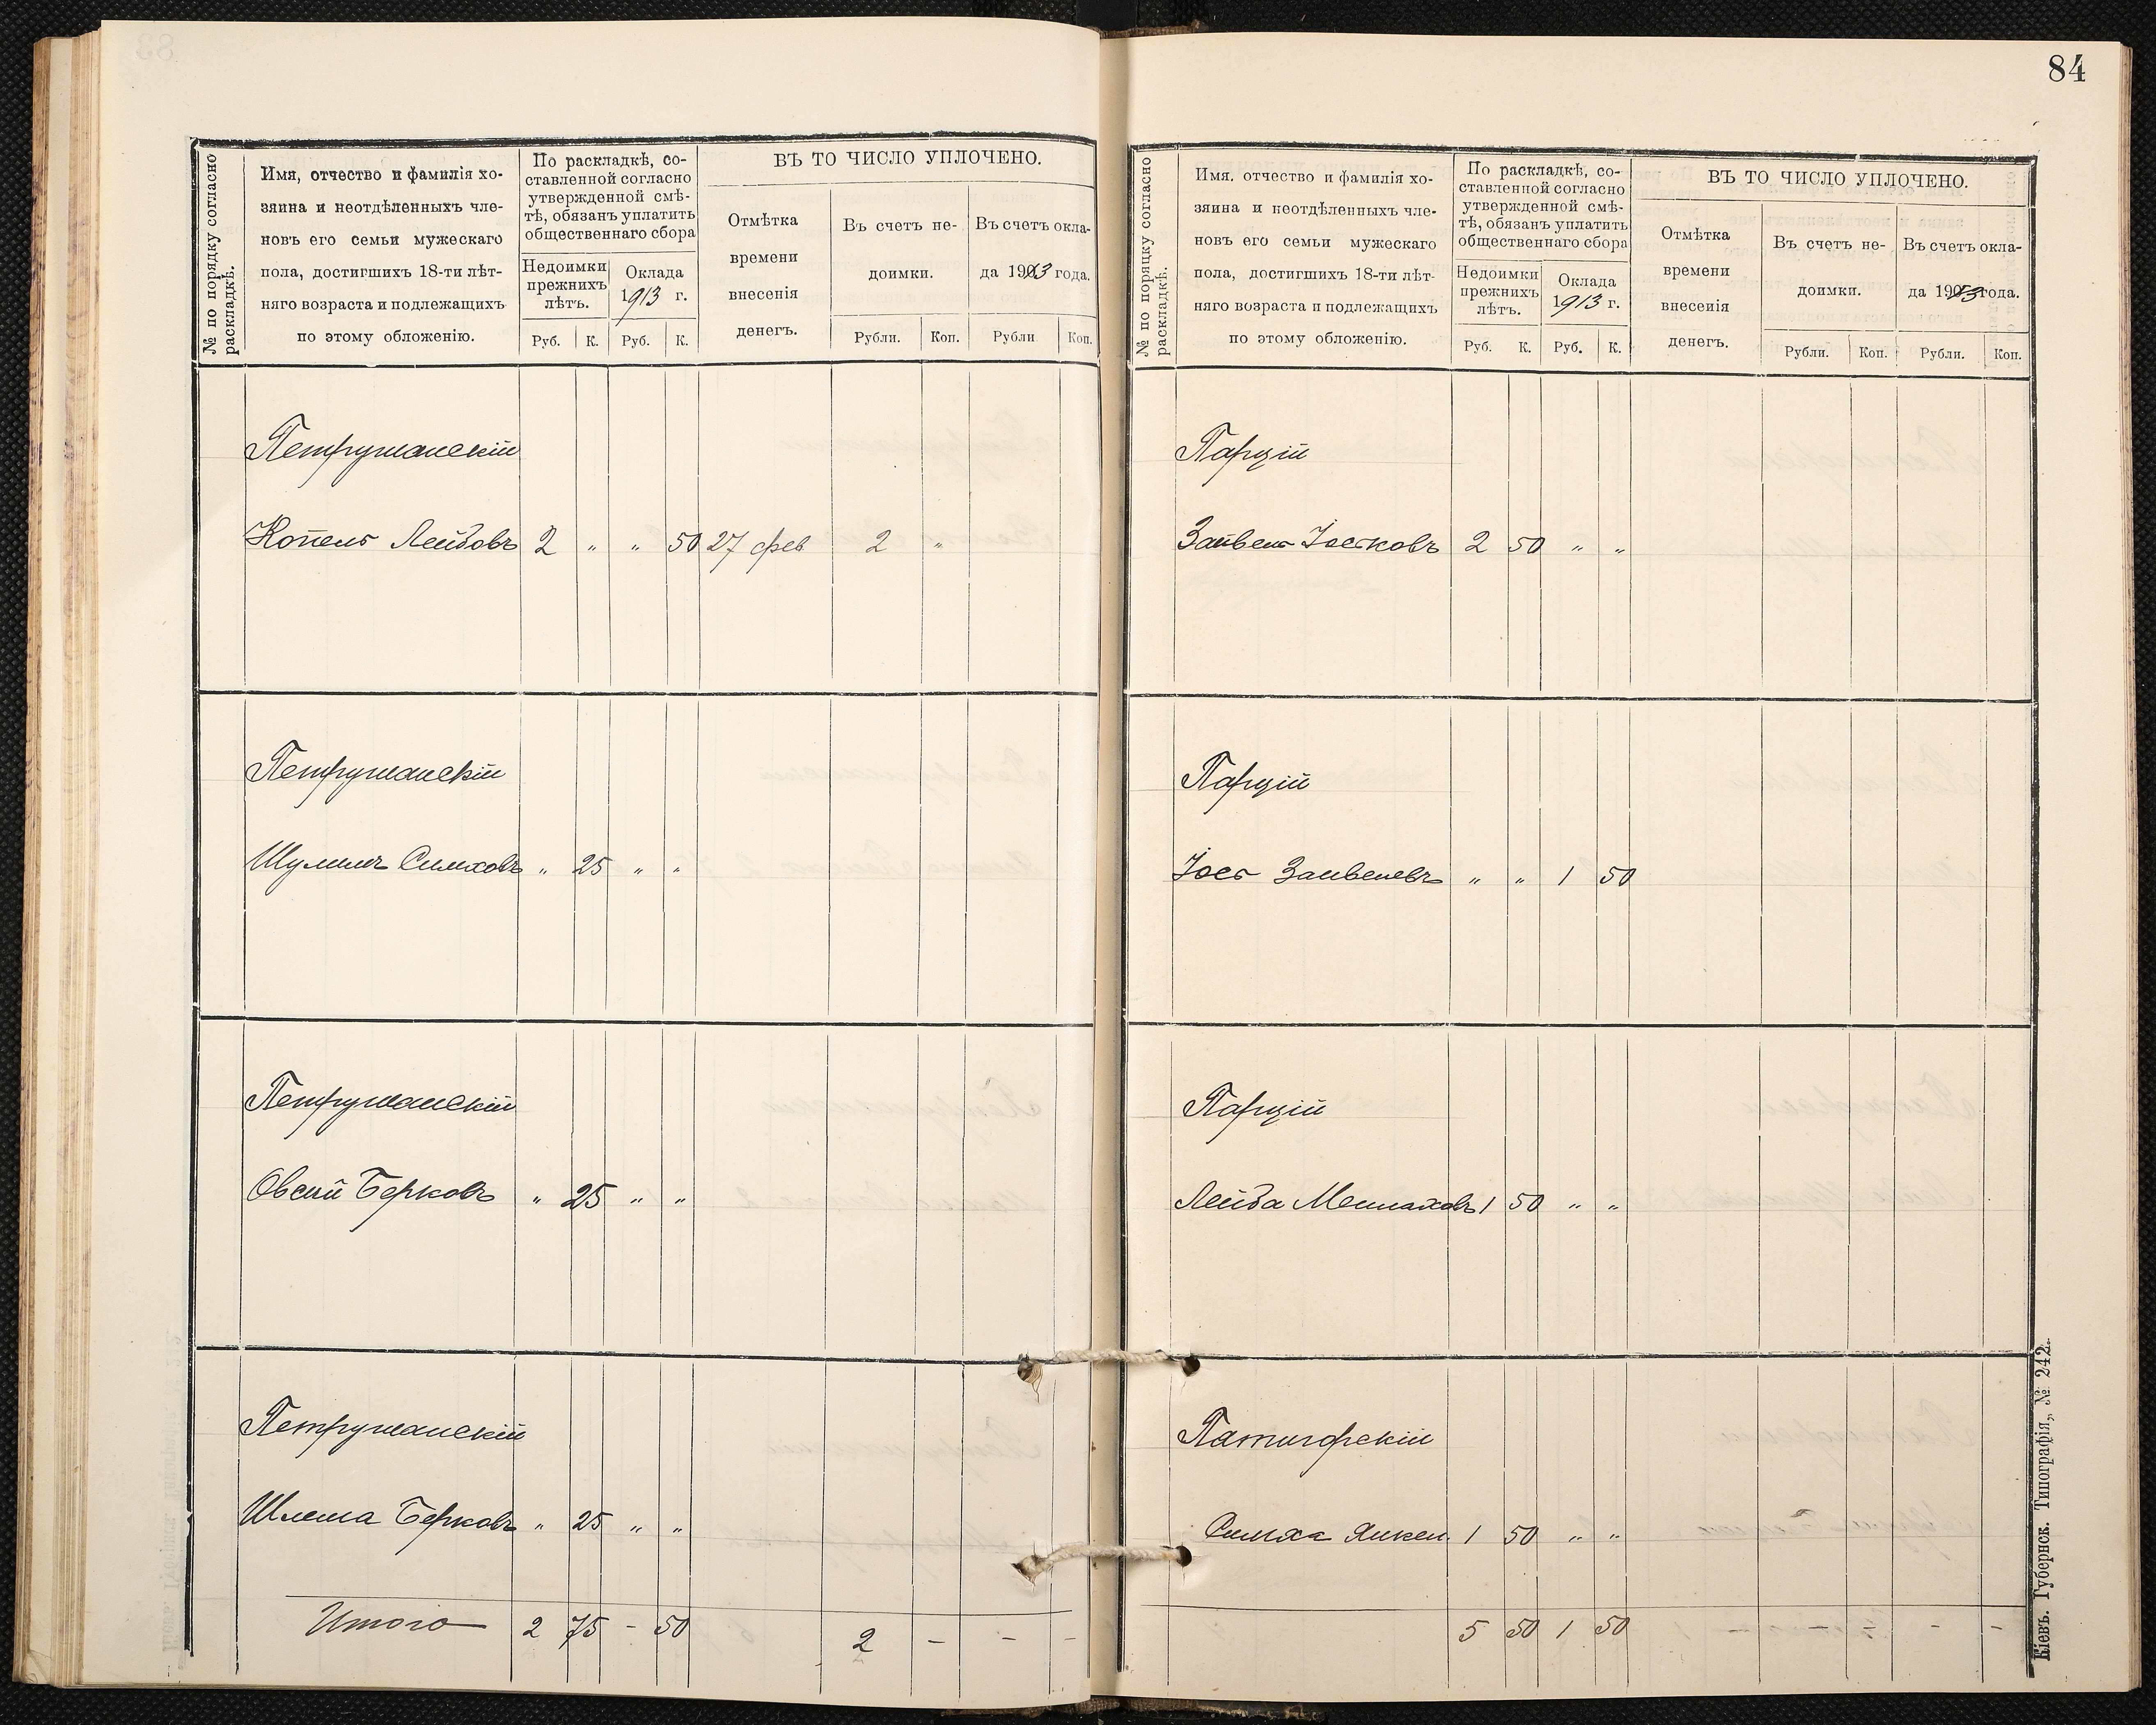 84
№ по порядку согласно
раскладкѣ.
Имя, отчество и фамилія хо-
зяина и неотдѣленныхъ чле-
новъ его семьи мужескаго
пола, достигшихъ 18-ти лѣт-
няго возраста и подлежащихъ
по этому обложенію.
По раскладкѣ, со-
ставленной согласно
утвержденной смѣ-
тѣ, обязанъ уплатить
общественнаго сбора
Недоимки
прежнихъ
лѣтъ.
Оклада
1913 г.
Руб. К. Руб. К.
ВЪ ТО ЧИСЛО УПЛОЧЕНО.
Отмѣтка
времени
внесенія
денегъ.
Въ счетъ не-
доимки.
Въ счетъ окла-
да 1913 года.
Рубли. Коп. Рубли Коп.
Петрушанскій
Копель Лейбовъ 2 " " 50 27 фев 2 "
Петрушанскій
Шулимъ Симховъ " 25 " "
Петрушанскій
Овсій Берковъ " 25 " "
Петрушанскій
Шлема Берковъ " 25 " "
Итого 2 75 - 50 2 - - -
№ по порядку согласно
раскладкѣ.
Имя, отчество и фамилія хо-
зяина и неотдѣленныхъ чле-
новъ его семьи мужескаго
пола, достигшихъ 18-ти лѣт-
няго возраста и подлежащихъ
по этому обложенію.
По раскладкѣ, со-
ставленной согласно
утвержденной смѣ-
тѣ, обязанъ уплатить
общественнаго сбора
Недоимки
прежнихъ
лѣтъ.
Оклада
1913 г.
Руб. К. Руб. К.
ВЪ ТО ЧИСЛО УПЛОЧЕНО.
Отмѣтка
времени
внесенія
денегъ.
Въ счетъ не-
доимки.
Въ счетъ окла-
да 1913 года.
Рубли. Коп. Рубли. Коп.
Парцій
Зайвель Іоськовъ 2 50 " "
Парцій
Іось Зайвелевъ " " 1 50
Парцій
Лейба Меншаховъ 1 50 " "
Пятигорскій
Симха Янкел. 1 50 " "
5 50 1 50 - - - -
Кіевъ. Губернск. Типографія,, № 242.